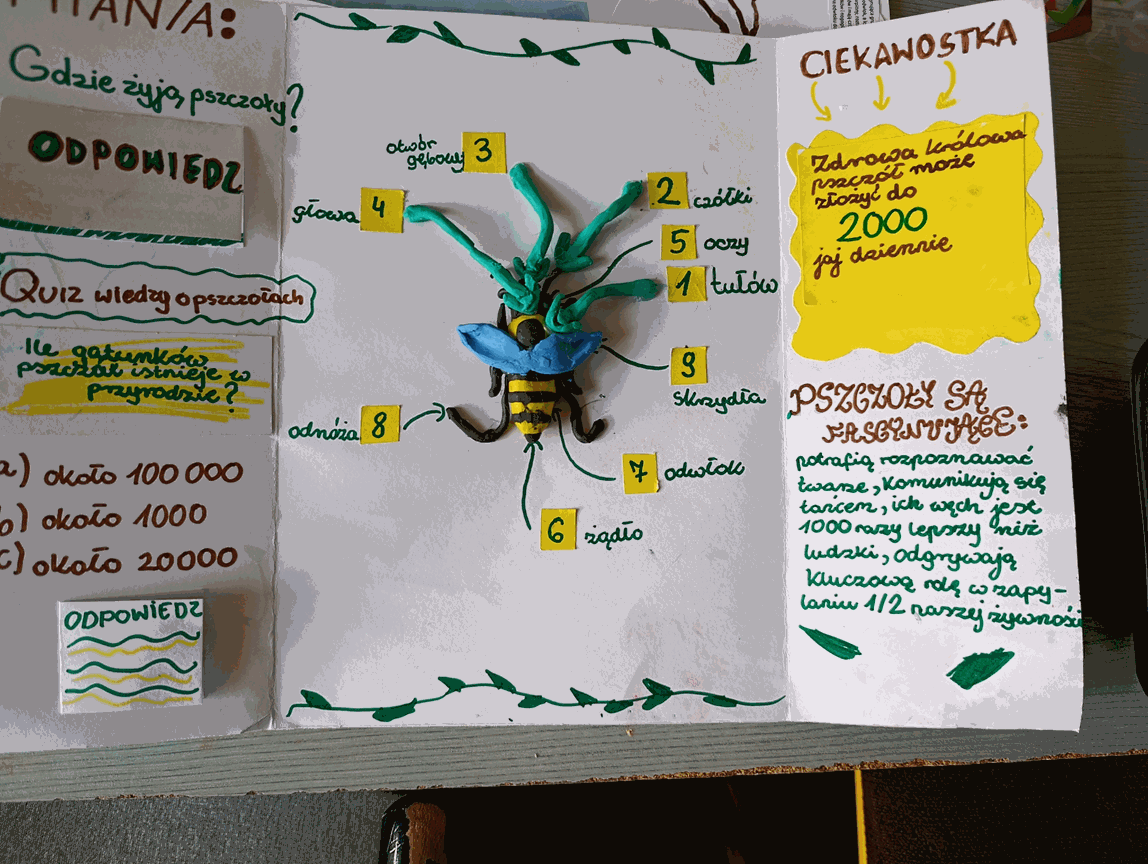 Gdzie żyją pszczoły?
ODPOWIEDZ
Quiz wiedzy o pszczołach
Ile gatunków
pszczół istnieje w
przyrodzie?
a) około 100 000
b) około 1000
c) około 20000
ODPOWIEDZ
otwór
gębowy 3
głowa 4
2 czółki
5 oczy
1 tułów
9
skrzydła
odnóża 8
7 odwłok
6 żądło
CIEKAWOSTKA
Zdrowa królowa
pszczół może
złożyć do
2000
jaj dziennie
PSZCZOŁY SĄ
FASCYNUJĄCE:
potrafią rozpoznawać
twarze, komunikują się
tańcem, ich węch jest
1000 razy lepszy niż
ludzki, odgrywają
kluczową rolę w zapy-
laniu 1/2 naszej żywności